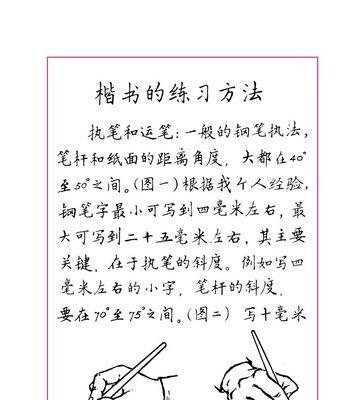 楷书的练习方法
执笔和运笔:一般的钢笔执法,
笔杆和纸面的距离角度,大都在40°
至50°之间。(图一)根据我个人经验,
钢笔字最小可写到四毫米左右,最
大可写到二十五毫米左右,其主要
关键,在于执笔的斜度。例如写四
毫米左右的小字,笔杆的斜度,
要在70°至75°之间。(图二)写十毫米